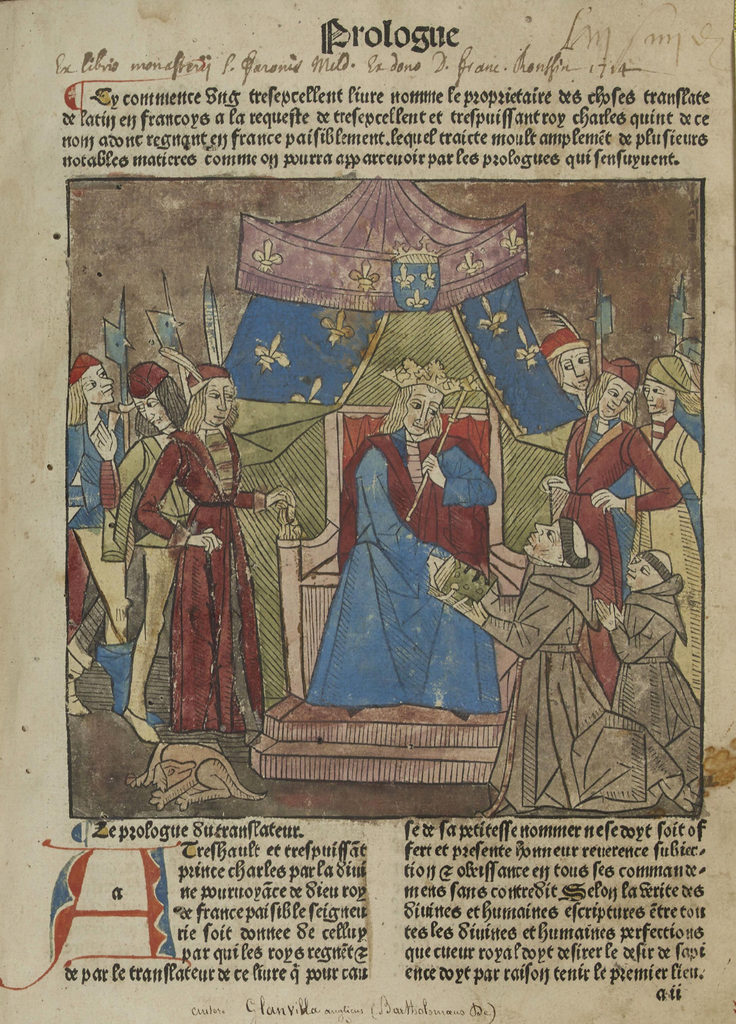 Prologue
Ex libris monasterii S. Faronis Meld. Ex dono D. Franc. Roussin 1714
Cy commence vng tresexcellent liure nomme le proprietaire des choses translate
de latin en francoys a la requeste de tresexcellent et trespuissant roy charles quint de ce
nom adonc regnant en france paisiblement. lequel traicte moult amplement de plusieurs
notables matieres comme on pourra apparceuoir par les prologues qui sensuyuent.
Le prologue du translateur.
A
a
Treshault et trespuissāt
prince charles par la diui
ne pourueyāce de dieu roy
de france paisible seigneu
rie soit donnee de celluy
par qui les roys regnēt &
de par le translateur de ce liure q̄ pour cau
se de sa petitesse nommer ne se doyt soit of
fert et presente honneur reuerence subiec-
tion & obeissance en tous ses commande-
mens sans contredit Selon la verite des
diuines et humaines escriptures ētre tou
tes les diuines et humaines perfections
que cueur royal doyt desirer le desir de sapi
ence doyt par raison tenir le premier lieu.
a ii
autore Glanvilla anglicus (Bartholomaeus De)